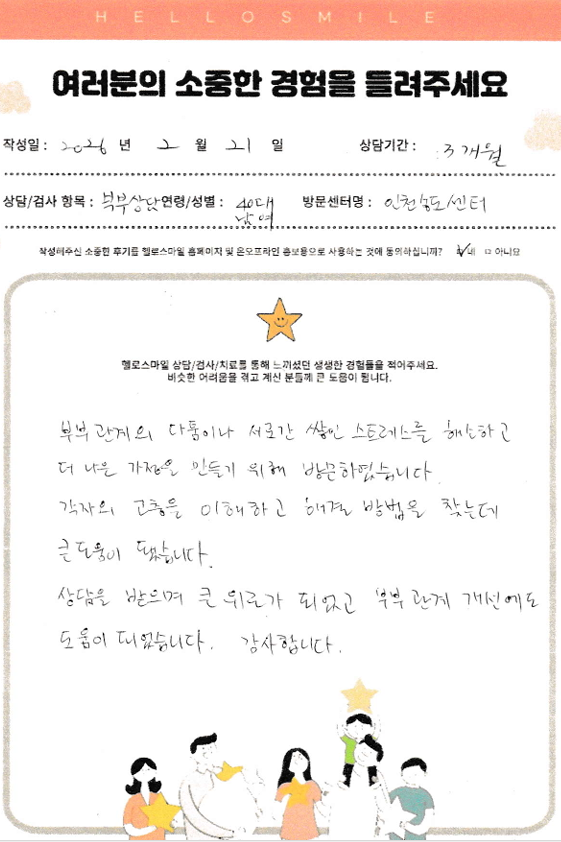 HELLOSMILE
여러분의 소중한 경험을 들려주세요
작성일 : 2026 년 2 월 21 일 상담기간 : 3개월
상담/검사 항목 : 부부상담 연령/성별 : 40대 남여 방문센터명 : 인천송도센터
작성해주신 소중한 후기를 헬로스마일 홈페이지 및 온오프라인 홍보용으로 사용하는 것에 동의하십니까? ☑ 네 □ 아니요
헬로스마일 상담/검사/치료를 통해 느끼셨던 생생한 경험들을 적어주세요.
비슷한 어려움을 겪고 계신 분들께 큰 도움이 됩니다.
부부관계의 다툼이나 서로간 쌓인 스트레스를 해소하고
더 나은 가정을 만들기 위해 방문하였습니다.
각자의 고충을 이해하고 해결 방법을 찾는데
큰 도움이 됐습니다.
상담을 받으며 큰 위로가 되었고 부부관계 개선에도
도움이 되었습니다. 감사합니다.